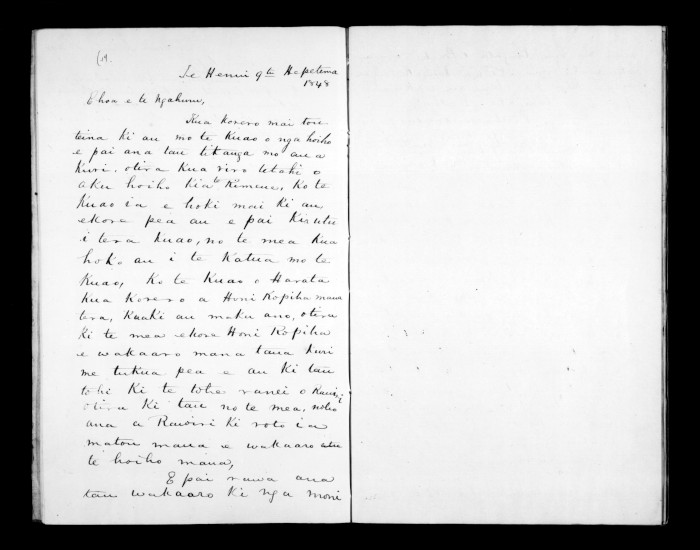 (19.
Te Henui 9th Hepetema
1848
E hoa e te Ngahuru,
Kua korero mai tou
teina ki au mo te kuao o nga hoiho
e pai ana tau tikanga mo au a
kuri, otira kua riro tetahi o
aku hoiho kia te Kimene, ko te
kuao ia e hoki mai ki au
ekore pea au e pai kia utu
i tera kuao, no te mea kua
hoko au i te katua mo te
kuao, ko te kuao o Harata
kua korero a Honi Ropiha mana
tera, kaaki au maku ano, otira
ki te mea ekore Honi Ropiha
e wakaaro mana taua kuri
me tukua pea e au ki tau
tohi ki te tohe ranei o
otira ki tau no te mea, noho
ana a Rawiri ki roto ia
matou mana e wakaaro atu
te hoiho mana,
E pai rawa ana
tau wakaaro ki nga moni